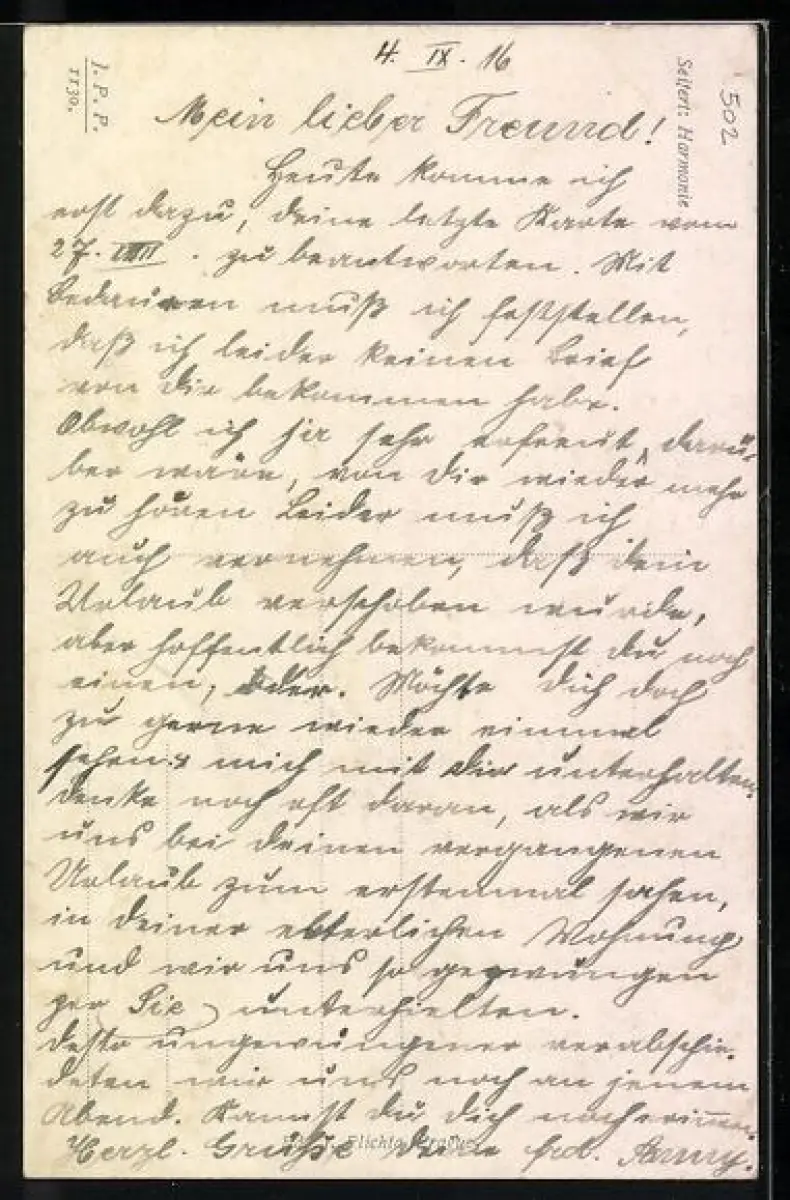 4. IX. 16
I. P. P.
1130.
Seifert: Harmonie
502
Mein lieber Freund!
Heute komme ich
erst dazu, deine letzte Karte vom
27. VIII. zu beantworten. Mit
Bedauern muß ich feststellen,
daß ich leider keinen Brief
von dir bekommen habe.
Obwohl ich ja sehr erfreut darü-
ber wäre, von dir wieder mehr
zu hören Leider muß ich
auch vernehmen, daß dein
Urlaub verschoben wurde,
aber hoffentlich bekommst du noch
einen, oder. Möchte dich doch
zu gerne wieder einmal
sehen u mich mit dir unterhalten.
Denke noch oft daran, als wir
uns bei deinen vergangenen
Urlaub zum erstenmal sahen,
in deiner elterlichen Wohnung
und wir uns so gezwungen
per Sie unterhielten.
Desto ungezwungener verabschie-
deten wir uns noch an jenem
Abend. Kannst du dich noch erinnern.
Herzl. Grüße deine frd. Anny.